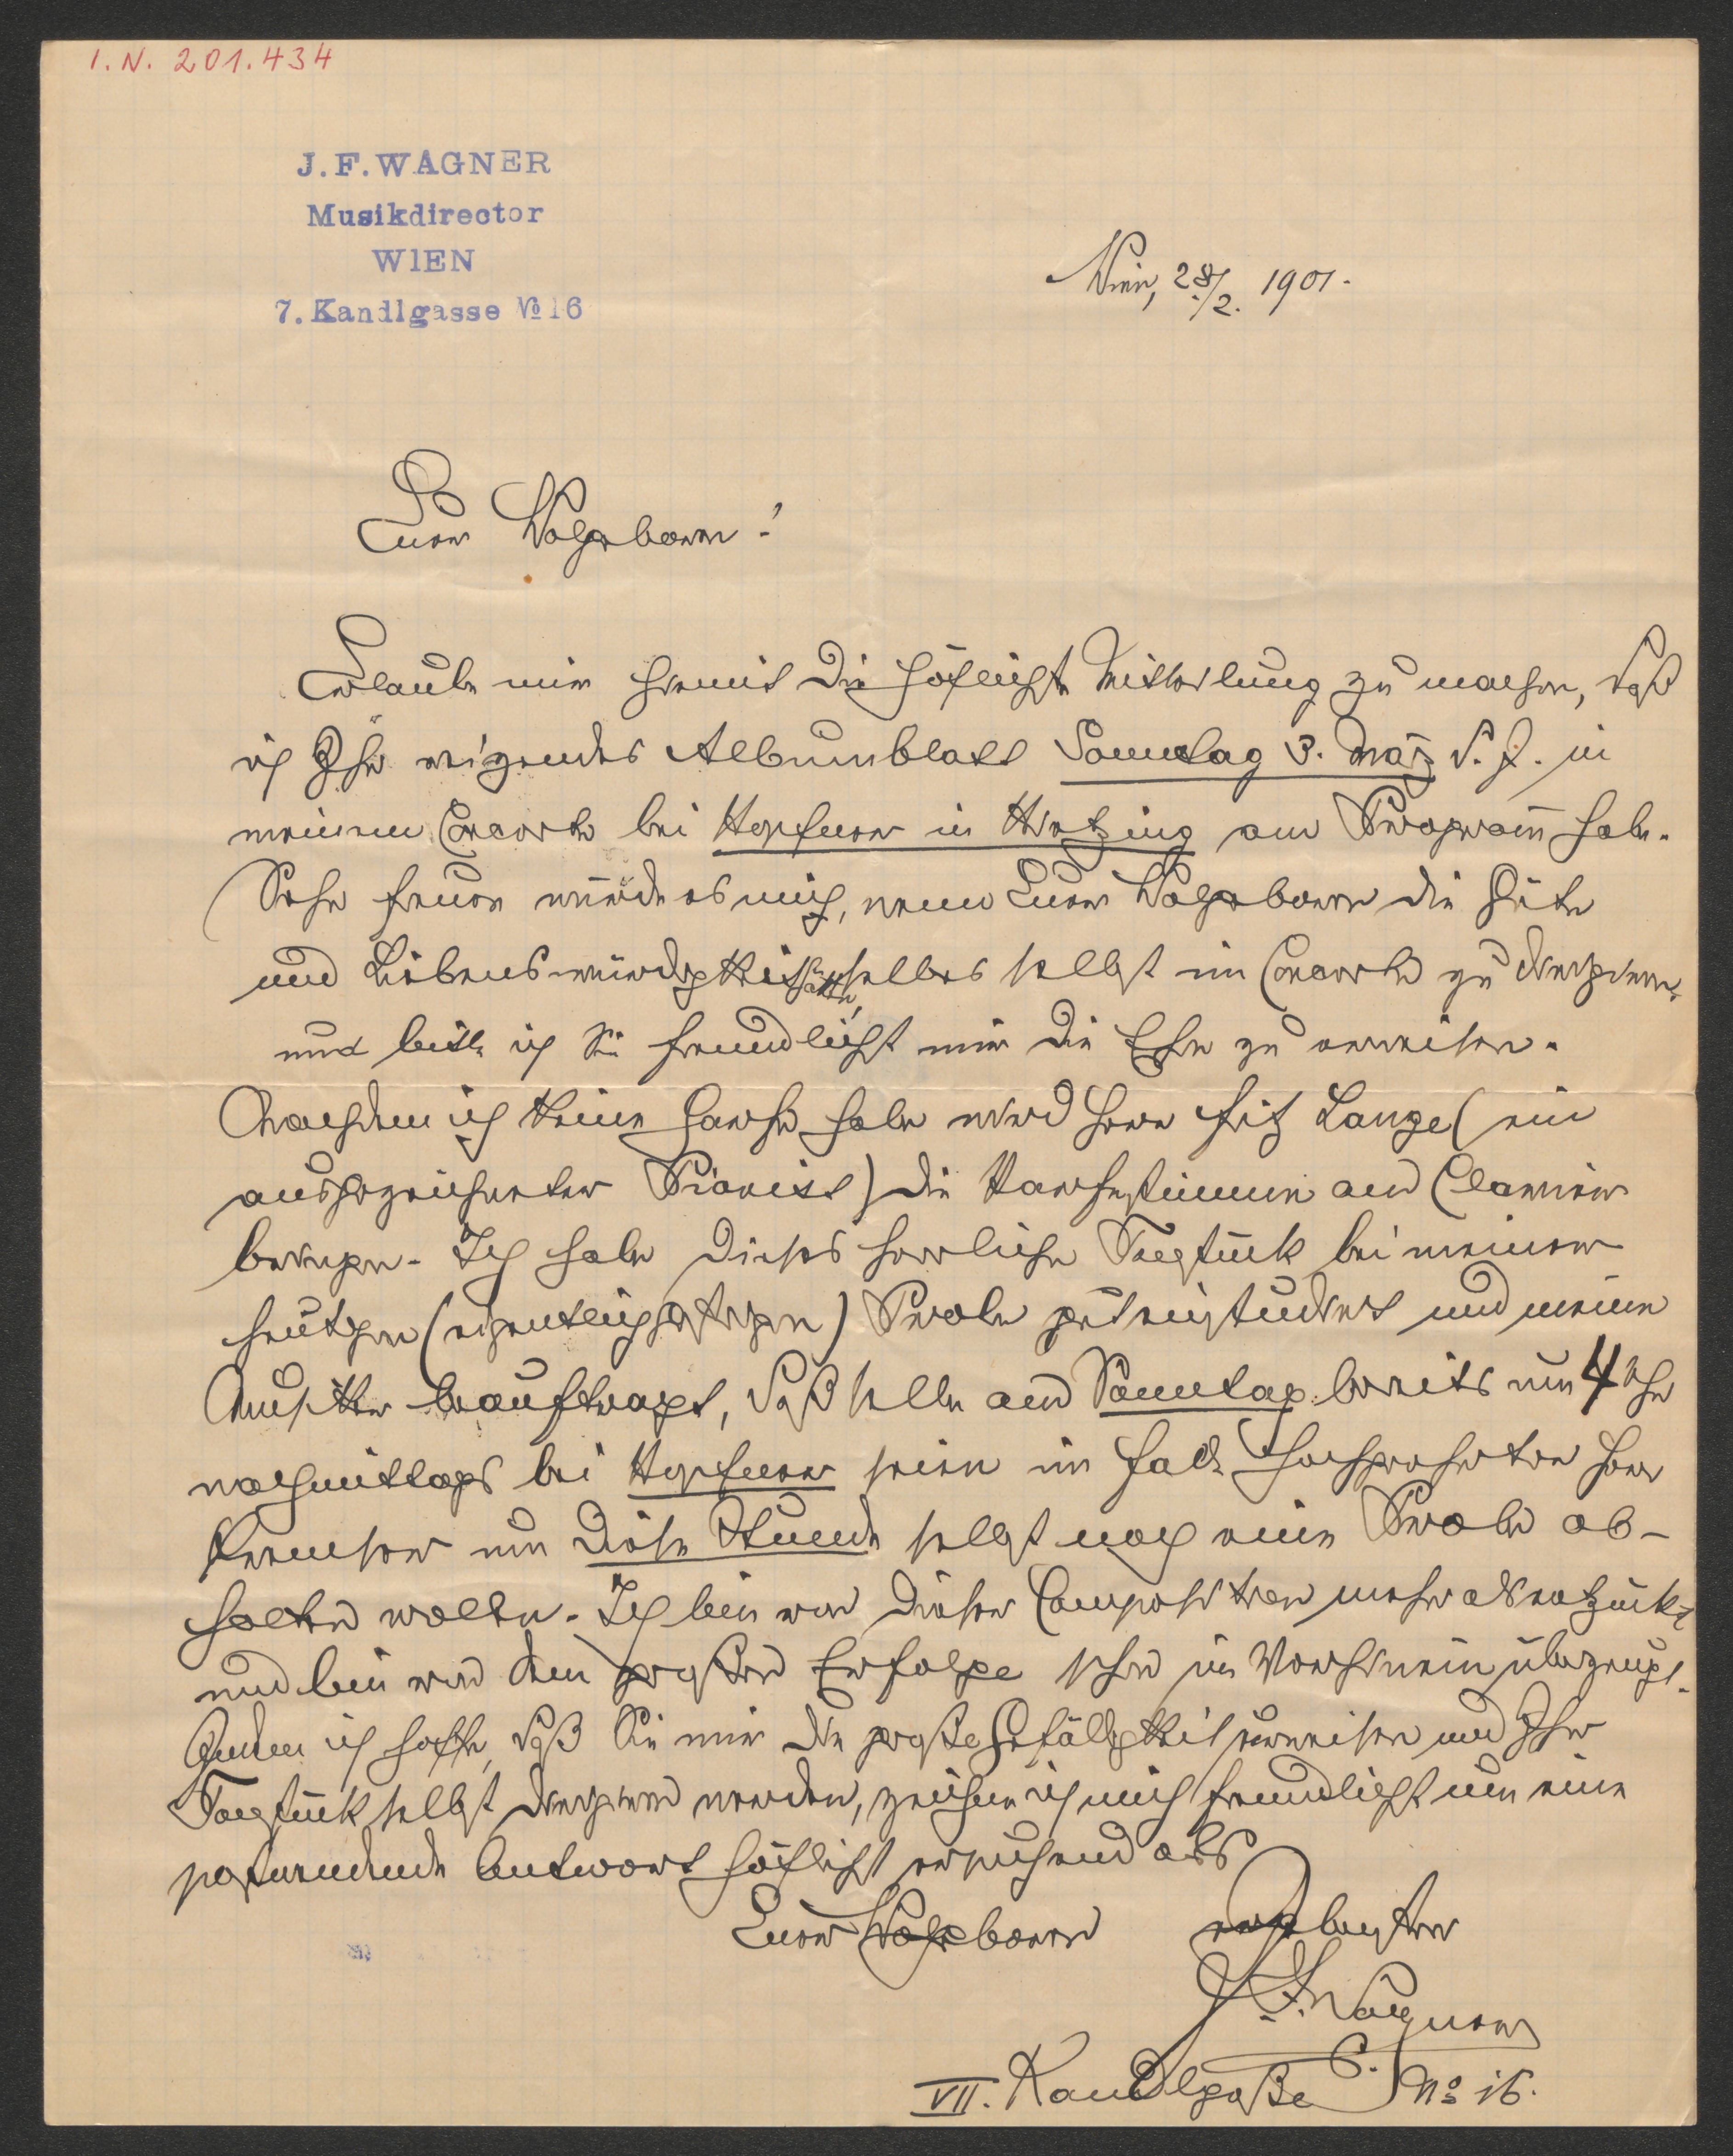 I. N. 201.434
J. F. WAGNER
Musikdirector
WIEN
7. Kandlgasse № 16
Wien, 28/2. 1901.
Euer Wolgeboren!
Erlaube mir hiemit die höflichste Mitteilung zu machen, daß
ich Ihr reizendes Albumblatt Sonntag 3. März d. J. in
meinem Concerte bei Hopfner in Hietzing am Program̅ habe.
Sehr freuen würde es mich, wenn Euer Wolgeboren die Güte
und Liebenswürdigkeit hätten, selbes selbst im Concerte zu dirigieren
und bitte ich Sie freundlichst mir die Ehre zu erweisen.
Nachdem ich keine Harfe habe wird Herr Fritz Lange (ein
ausgezeichneter Pianist) die Harfenstimme am Clavier
besorgen. Ich habe dieses herrliche Tonstück bei meiner
heutigen (eigentlich gestrigen) Probe gut einstudiert und meine
Musiker beauftragt, daß selbe am Sonntag bereits um 4 Uhr
nachmittags bei Hopfner seien im Falle hochgeehrter Herr
Kremser um diese Stunde selbst noch eine Probe ab-
halten wollen. Ich bin von dieser Composition mehr als entzückt
und bin von dem großen Erfolge schon im Vorhinein überzeugt.
Indem ich hoffe, daß Sie mir die große Gefälligkeit erweisen und Ihr
Tonstück selbst dirigieren werden, zeichne ich mich freundlichst um eine
postwendende Antwort höflichst ersuchend als
Euer Wolgeboren ergebenster
J. F. Wagner
VII. Kandlgaße № 16.